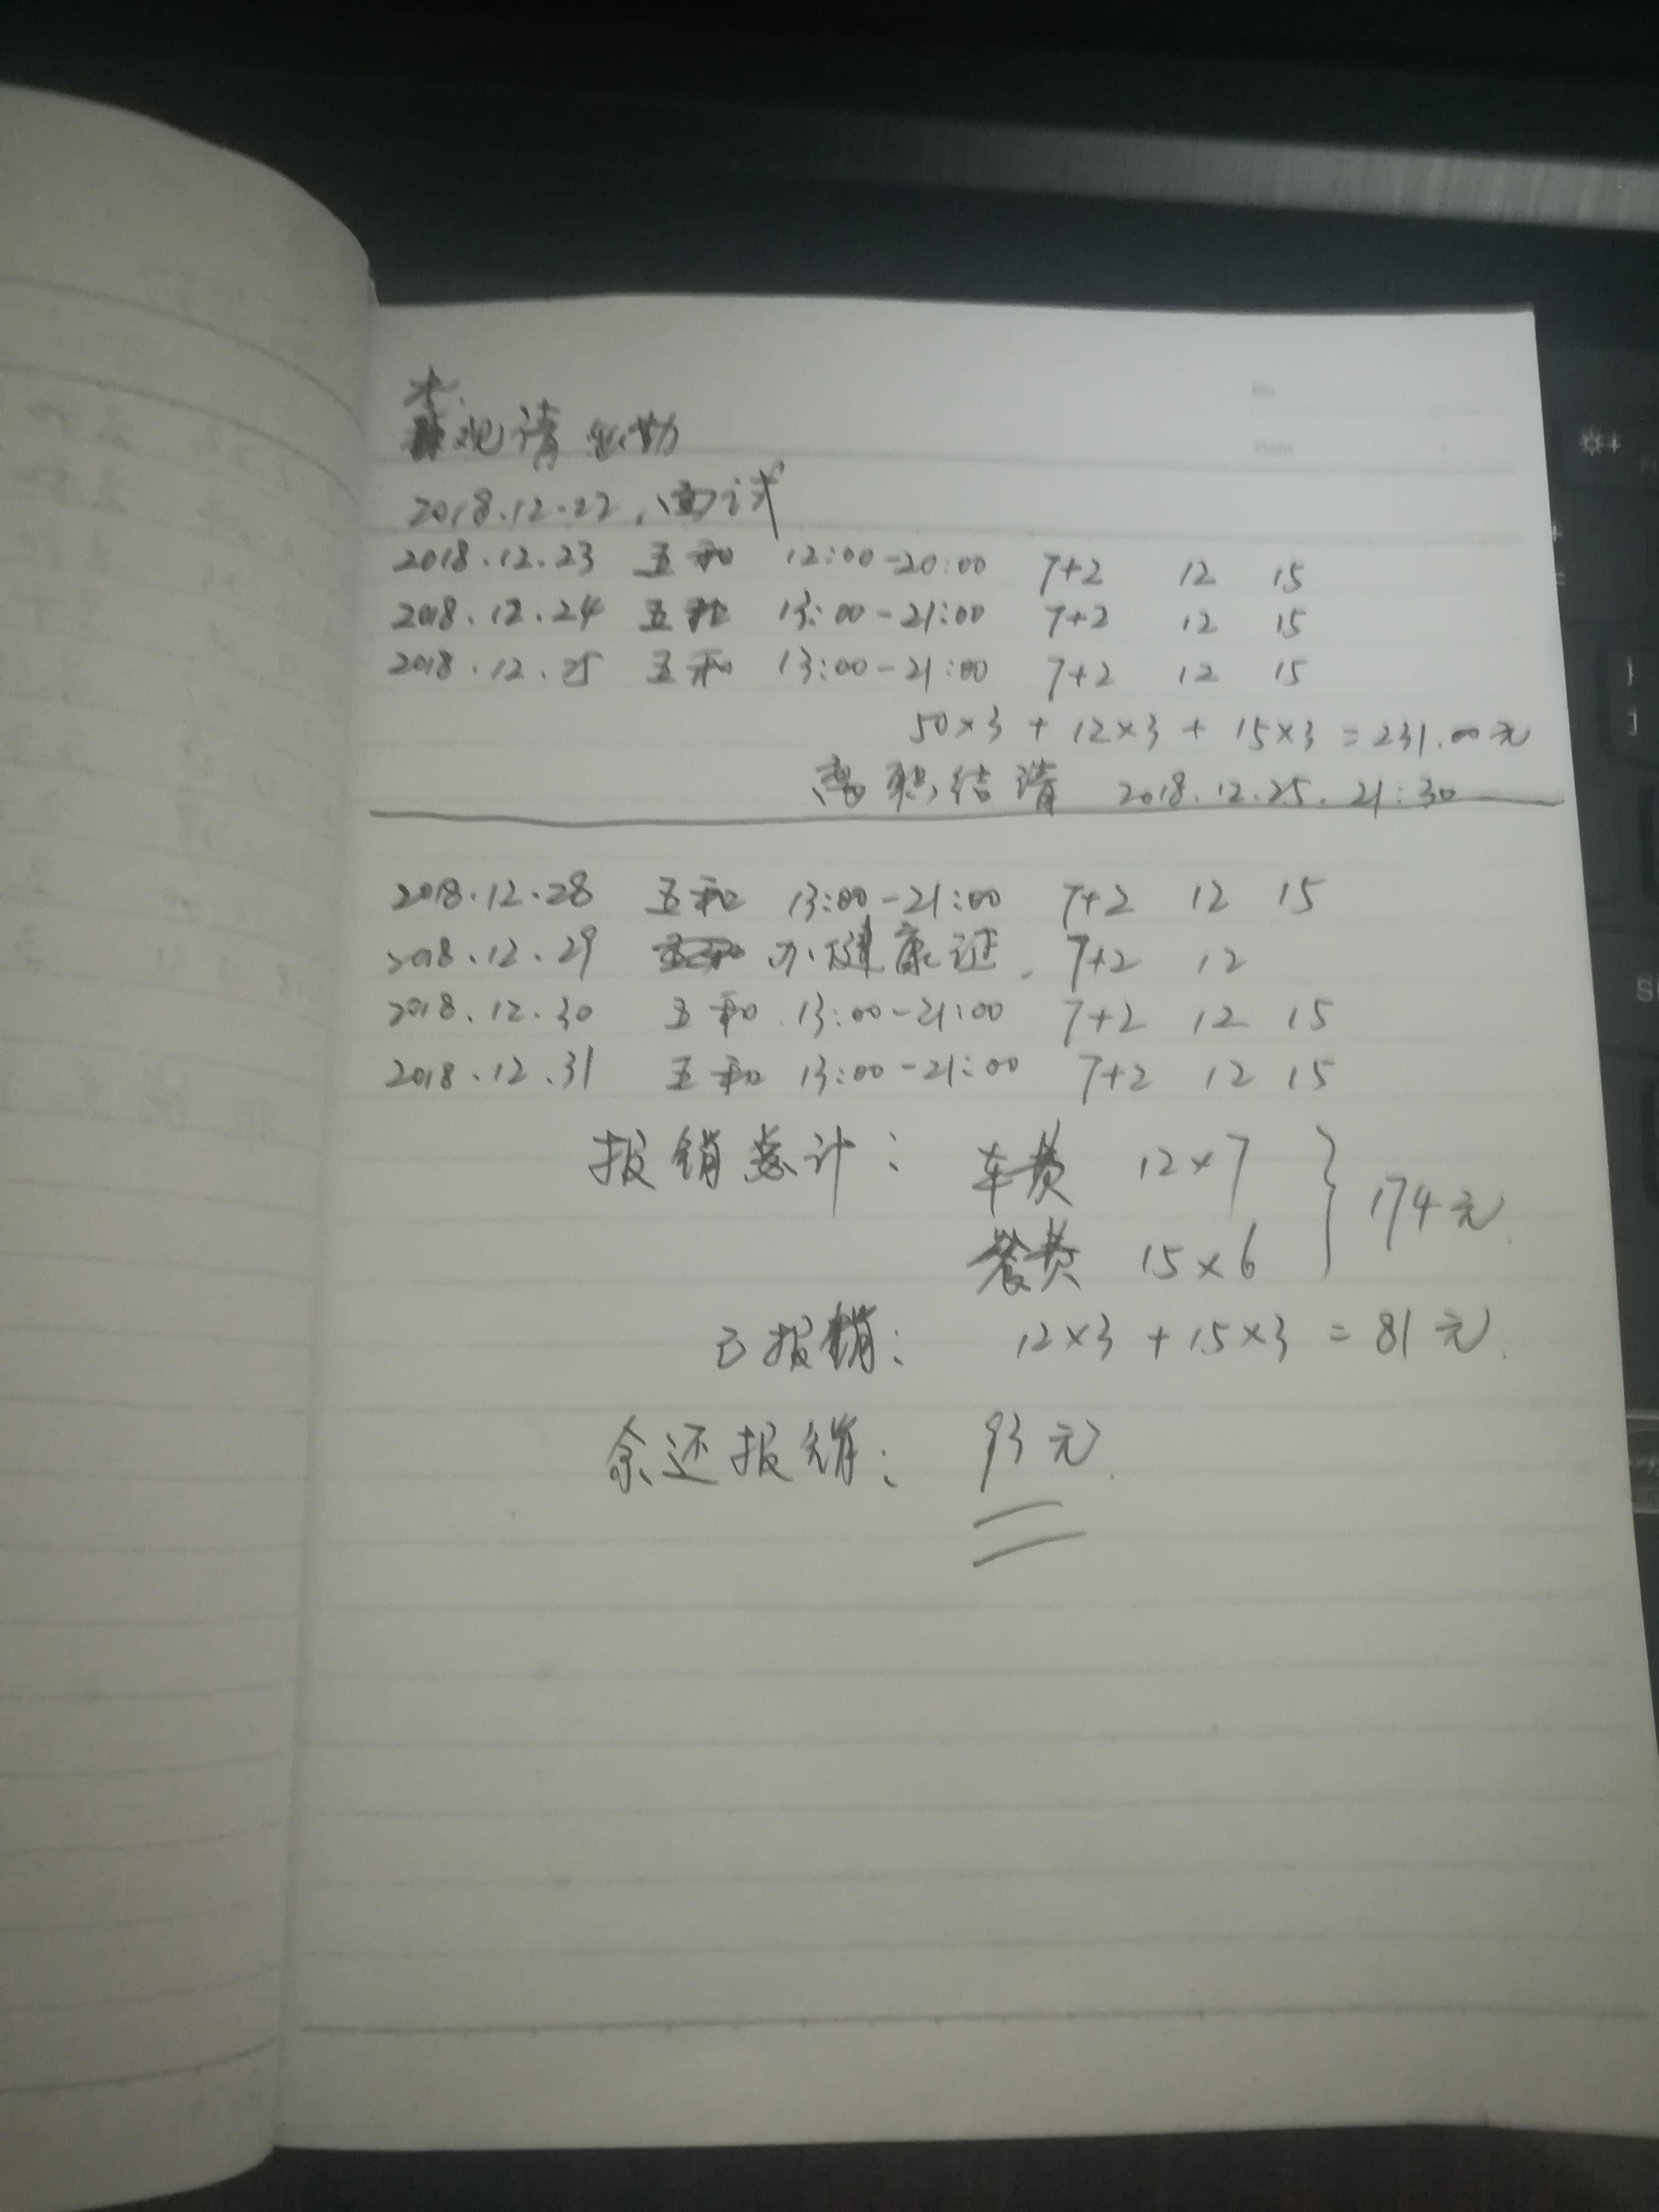 2018.12.22. 面试
2018.12.23 五和 12:00-20:00 7+2 12 15
2018.12.24 五和 13:00-21:00 7+2 12 15
2018.12.25 五和 13:00-21:00 7+2 12 15
50×3 + 12×3 + 15×3 = 231.00元
离职结清 2018.12.25. 21:30
2018.12.28 五和 13:00-21:00 7+2 12 15
2018.12.29 办健康证. 7+2 12
2018.12.30 五和 13:00-21:00 7+2 12 15
2018.12.31 五和 13:00-21:00 7+2 12 15
报销总计: 车费 12×7
174元.
餐费 15×6
已报销: 12×3 + 15×3 = 81元.
余还报销: 93元.